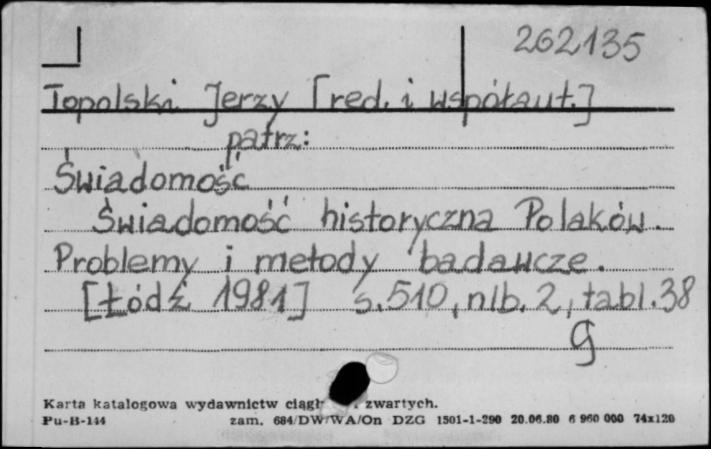 262135
Topolski Jerzy [red. i współaut.]
patrz:
Świadomość
Świadomość historyczna Polaków.
Problemy i metody badawcze.
[Łódź 1981] s.510, nlb. 2, tabl. 38
g
Karta katalogowa wydawnictw zwartych.
Pu-B-144 zam. 684/DW/WA/On DZG 1501-1-290 20.06.80 6 960 000 74x120